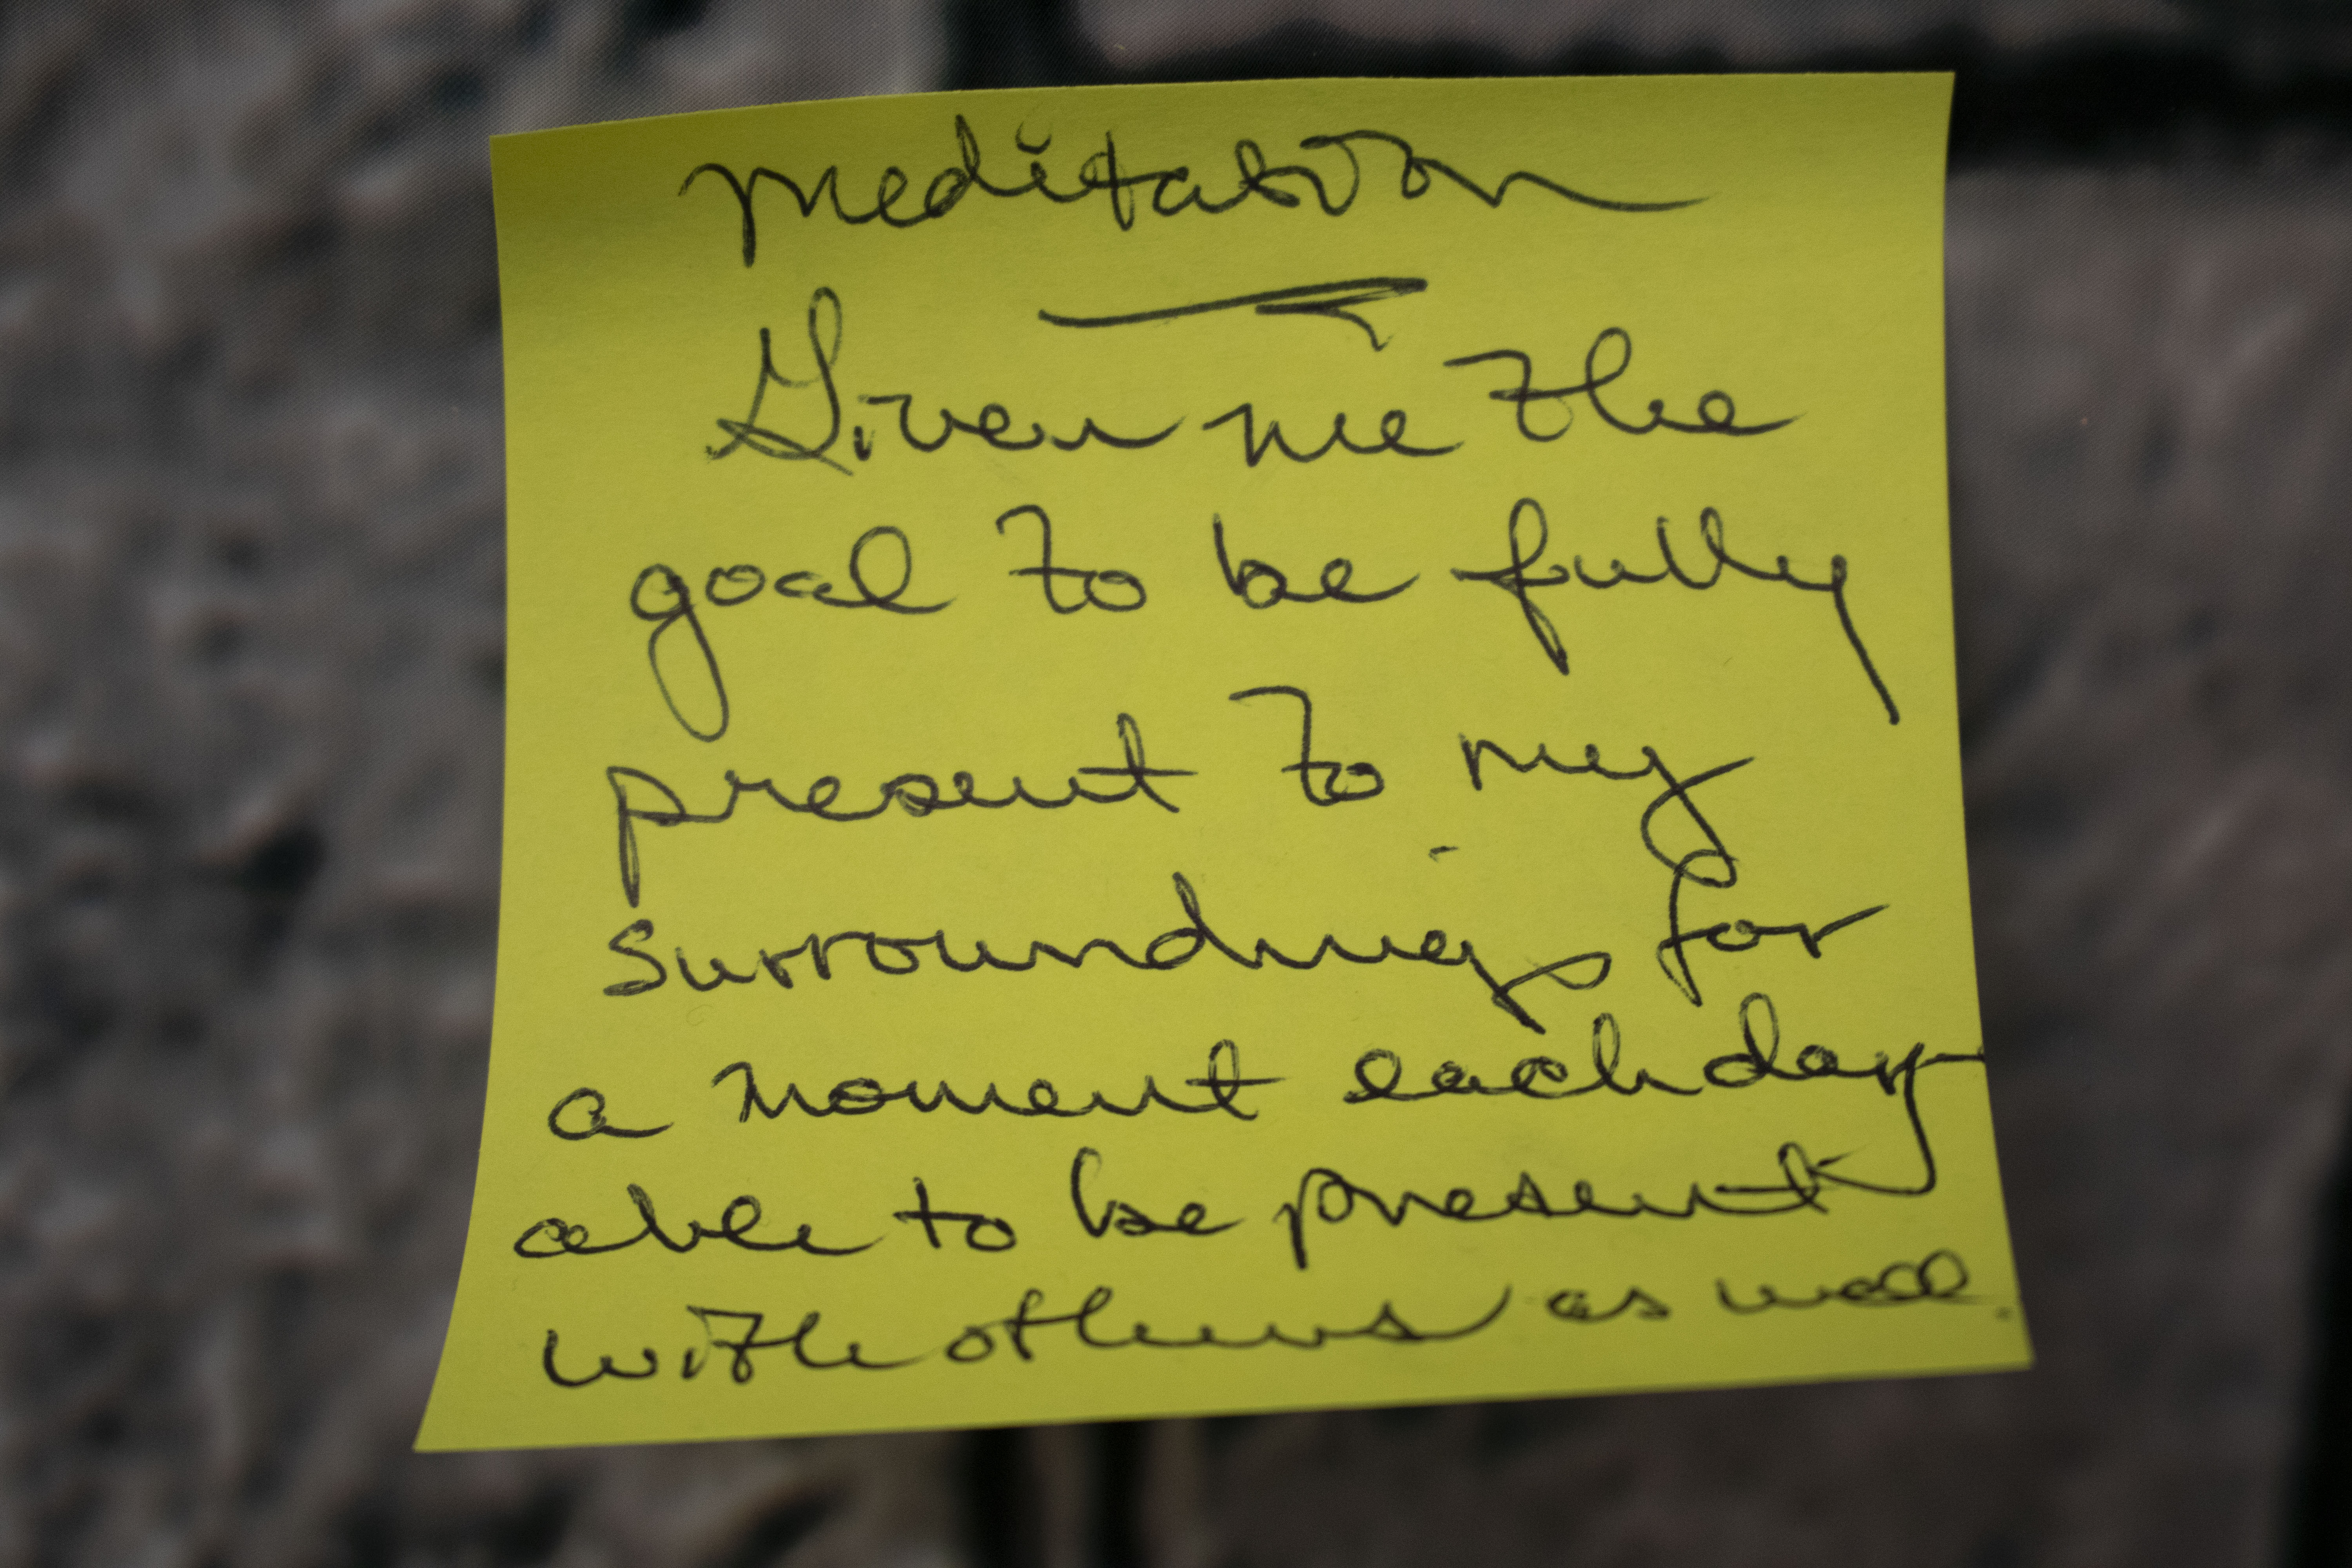 Meditation
Given me the
goal to be fully
present to my
surroundings for
a moment each day
able to be present
with others as well.